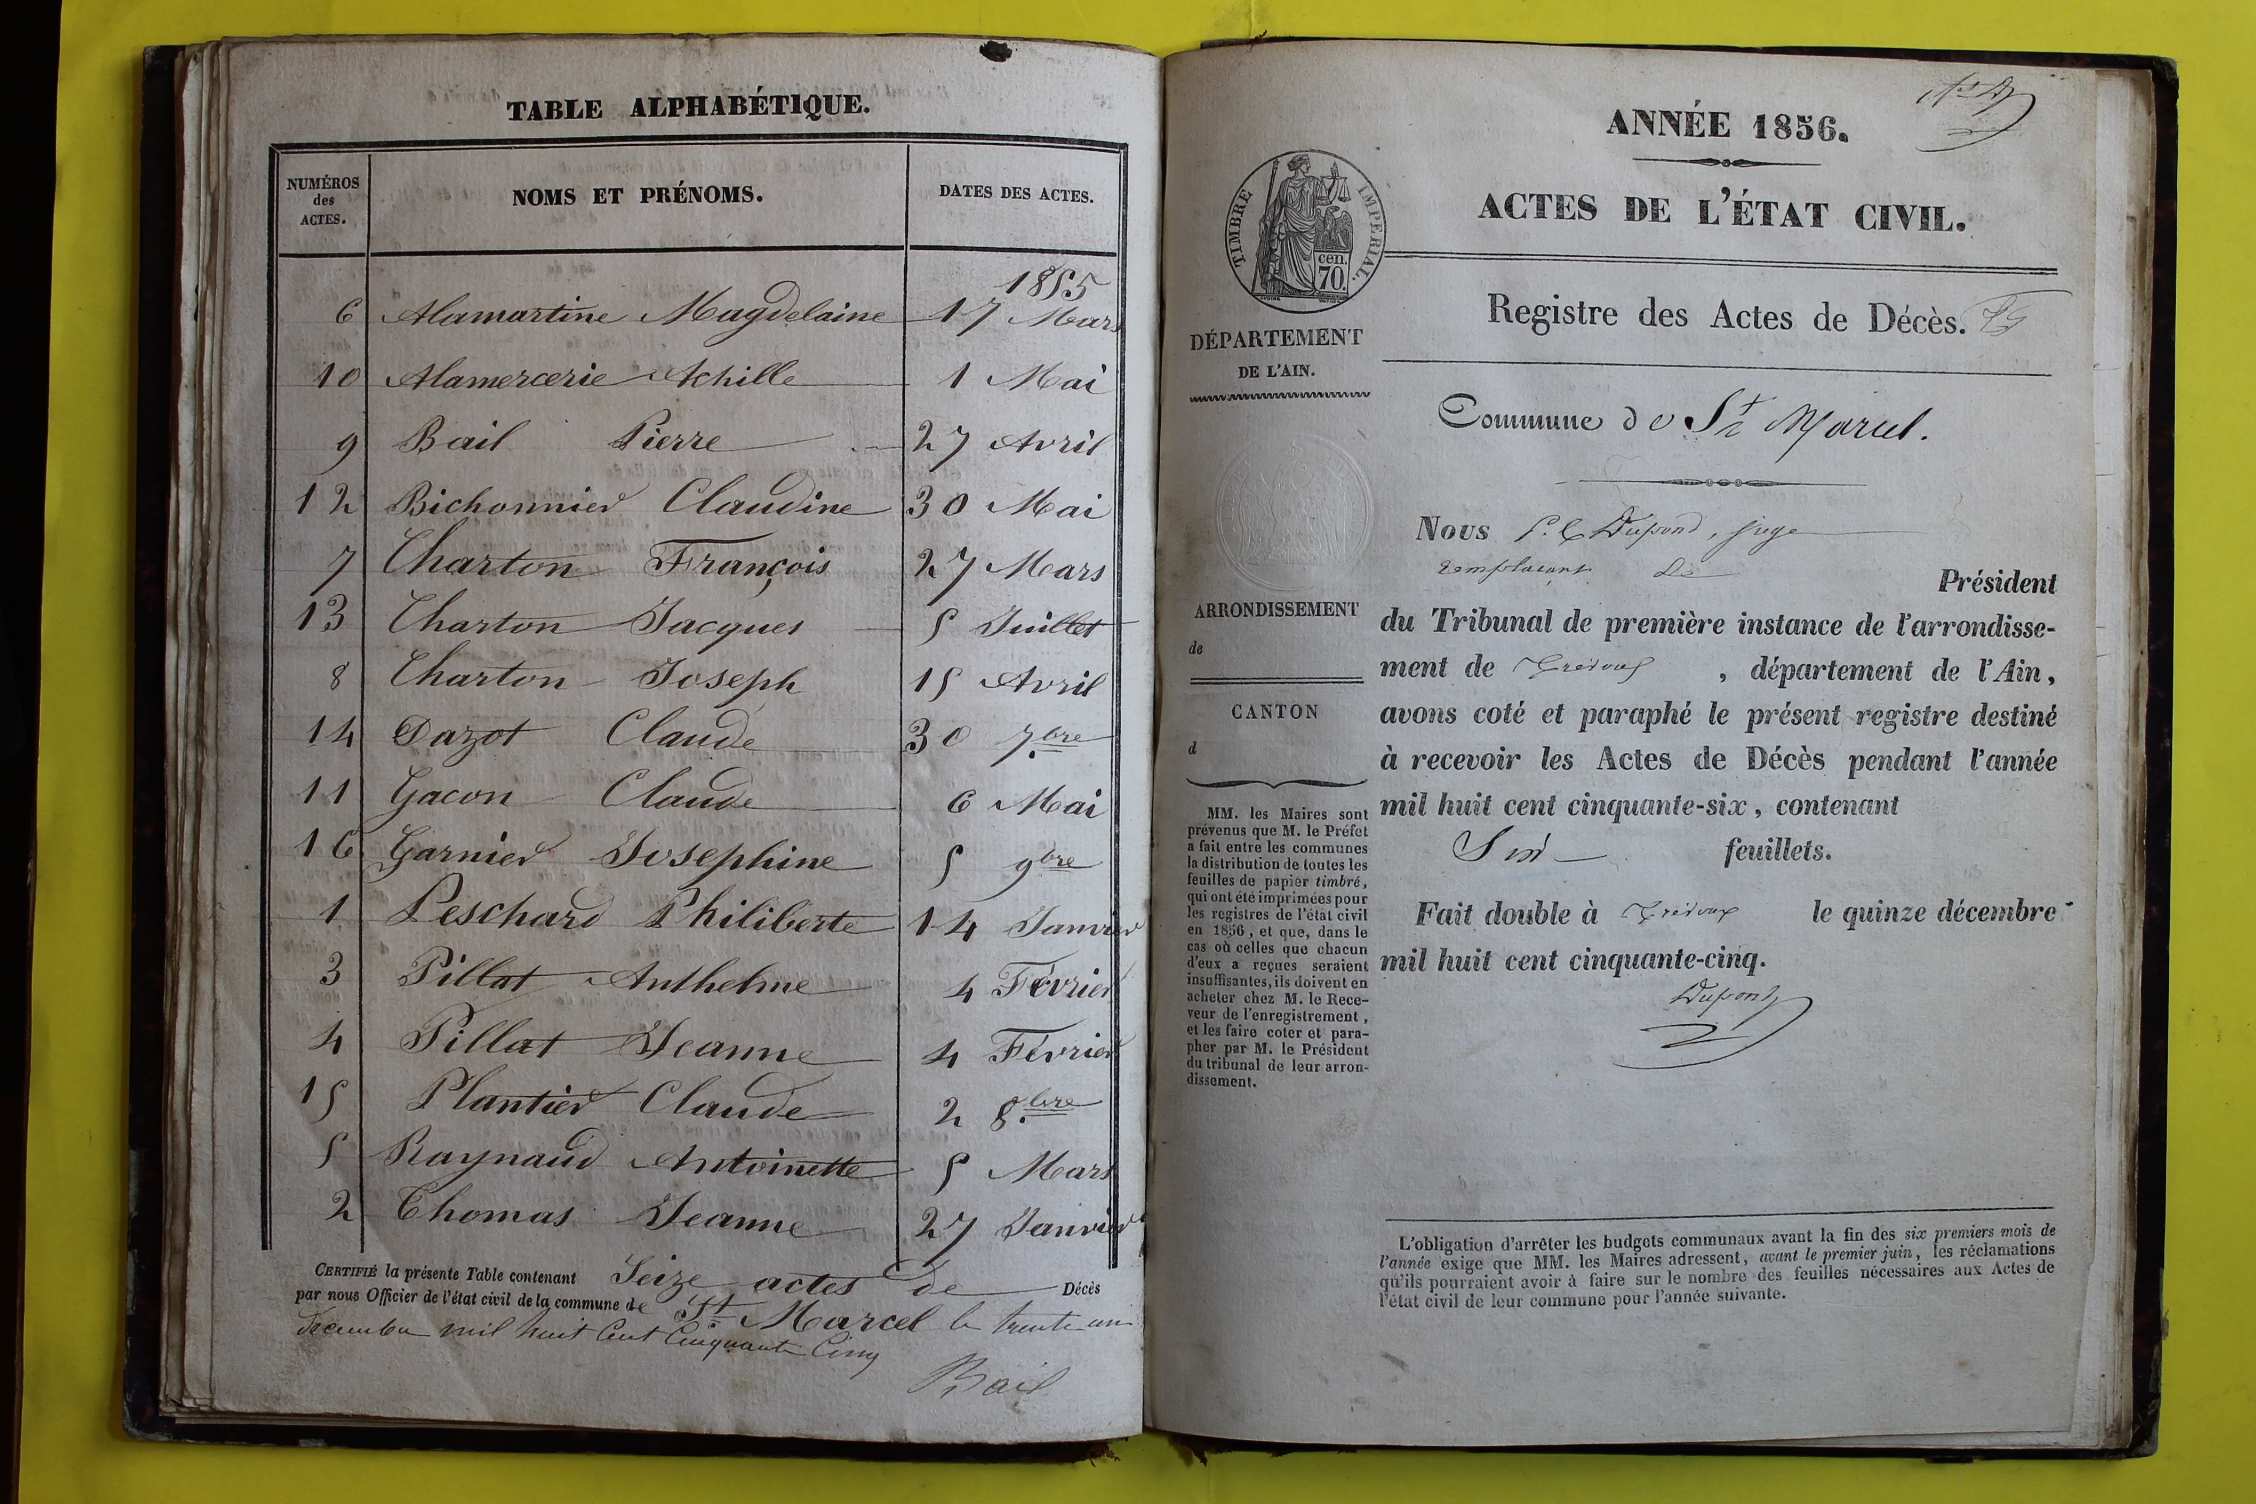 TABLE ALPHABÉTIQUE.
NUMÉROS
des
ACTES.
NOMS ET PRÉNOMS.
DATES DES ACTES.
1855
6 Alamartine Magdelaine 17 Mars
10 Alamercerie Achille 1 Mai
9 Bail Pierre 27 Avril
12 Bichonnier Claudine 30 Mai
7 Charton François 27 Mars
13 Charton Jacques 5 Juillet
8 Charton Joseph 15 Avril
14 Dazot Claude 30 7.bre
11 Gacon Claude 6 Mai
16 Garnier Josephine 5 9bre
1 Peschard Philiberte 14 Janvier
3 Pillat Anthelme 4 Février
4 Pillat Jeanne 4 Février
15 Plantier Claude 2 8.bre
5 Raynaud Antoinette 5 Mars
2 Thomas Jeanne 27 Janvier
CERTIFIÉ la présente Table contenant Seize actes de Décès
par nous Officier de l'état civil de la commune de St Marcel le trente un
Decembre mil huit Cent Cinquante Cinq
Bail
ANNÉE 1856.
ACTES DE L'ÉTAT CIVIL.
TIMBRE IMPÉRIAL.
cen.
70.
Registre des Actes de Décès.
DÉPARTEMENT
DE L'AIN.
Commune de St Marcel.
Nous P. C Dupond, juge
remplaçant le Président
du Tribunal de première instance de l'arrondisse-
ment de Trévoux, département de l'Ain,
avons coté et paraphé le présent registre destiné
à recevoir les Actes de Décès pendant l'année
mil huit cent cinquante-six, contenant
Six feuillets.
Fait double à Trévoux le quinze décembre
mil huit cent cinquante-cinq.
Dupond
ARRONDISSEMENT
de
CANTON
d
MM. les Maires sont
prévenus que M. le Préfet
a fait entre les communes
la distribution de toutes les
feuilles de papier timbré,
qui ont été imprimées pour
les registres de l'état civil
en 1856, et que, dans le
cas où celles que chacun
d'eux a reçues seraient
insuffisantes, ils doivent en
acheter chez M. le Rece-
veur de l'enregistrement,
et les faire coter et para-
pher par M. le Président
du tribunal de leur arron-
dissement.
L'obligation d'arrêter les budgets communaux avant la fin des six premiers mois de
l'année exige que MM. les Maires adressent, avant le premier juin, les réclamations
qu'ils pourraient avoir à faire sur le nombre des feuilles nécessaires aux Actes de
l'état civil de leur commune pour l'année suivante.